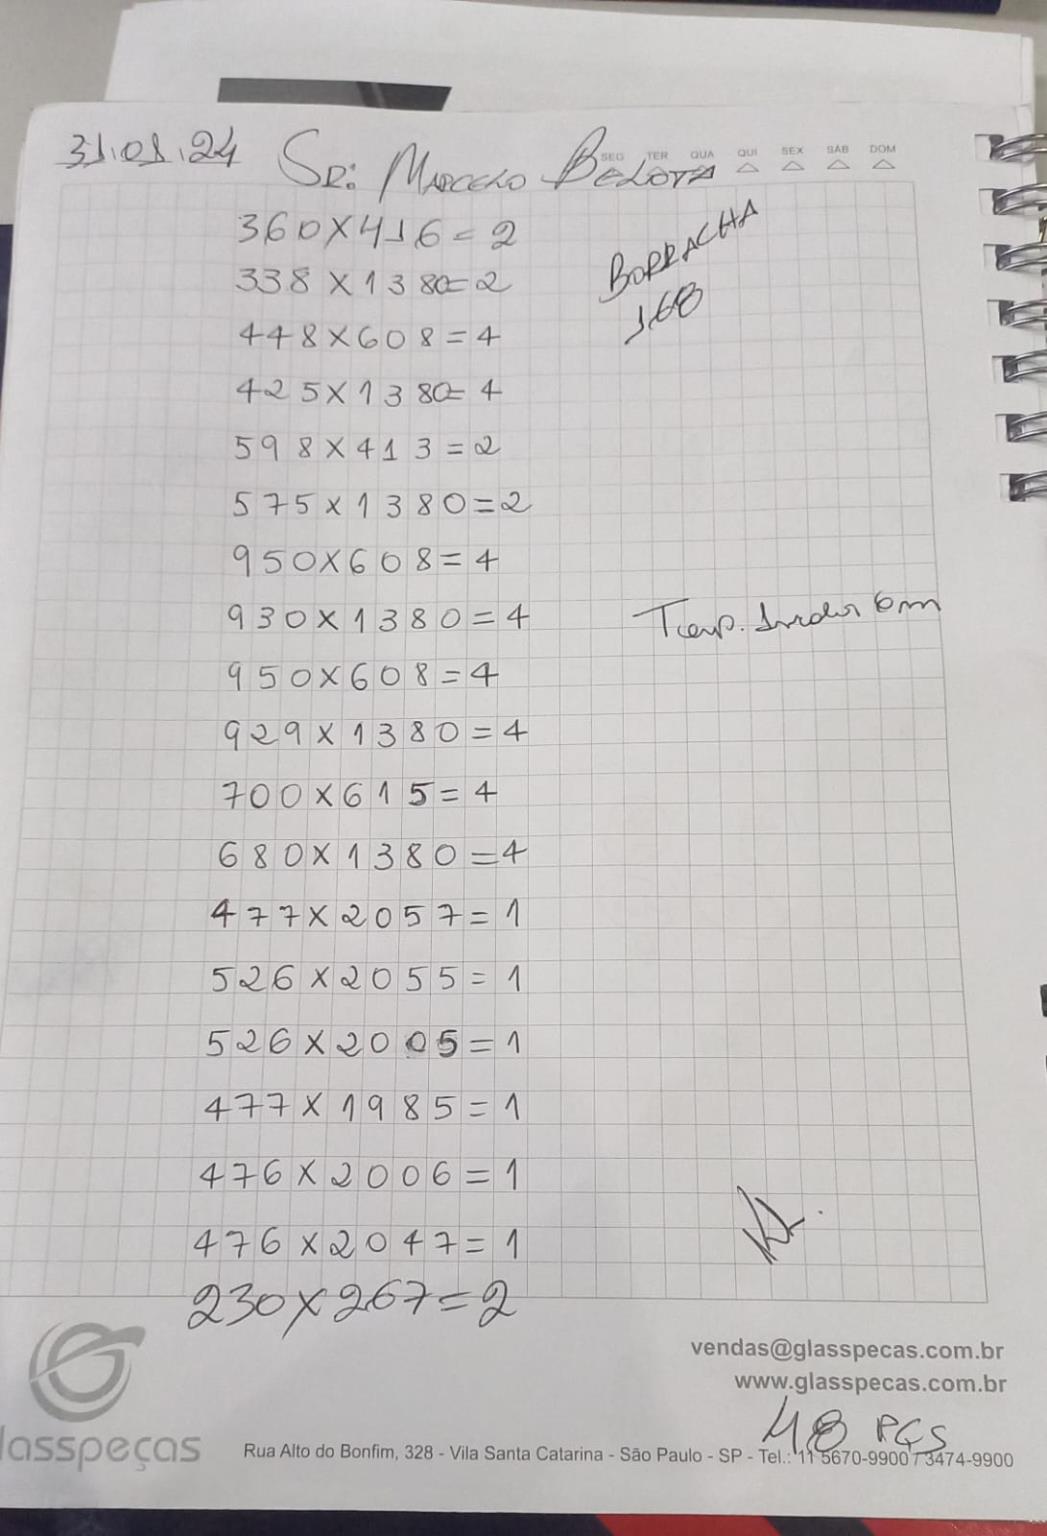 31.01.24 SR: MARCELO BELOTA
SEG TER QUA QUI SEX SÁB DOM
360X416=2
BORRACHA
338X1380=2
168
448X608=4
425X1380=4
598X413=2
575X1380=2
950X608=4
930X1380=4
Temp. Incolor 6m
950X608=4
929X1380=4
700X615=4
680X1380=4
477X2057=1
526X2055=1
526X2005=1
477X1985=1
476X2006=1
476X2047=1
230X267=2
vendas@glasspecas.com.br
www.glasspecas.com.br
48 PÇS
lasspeças
Rua Alto do Bonfim, 328 - Vila Santa Catarina - São Paulo - SP - Tel.: 11 5670-9900 / 3474-9900